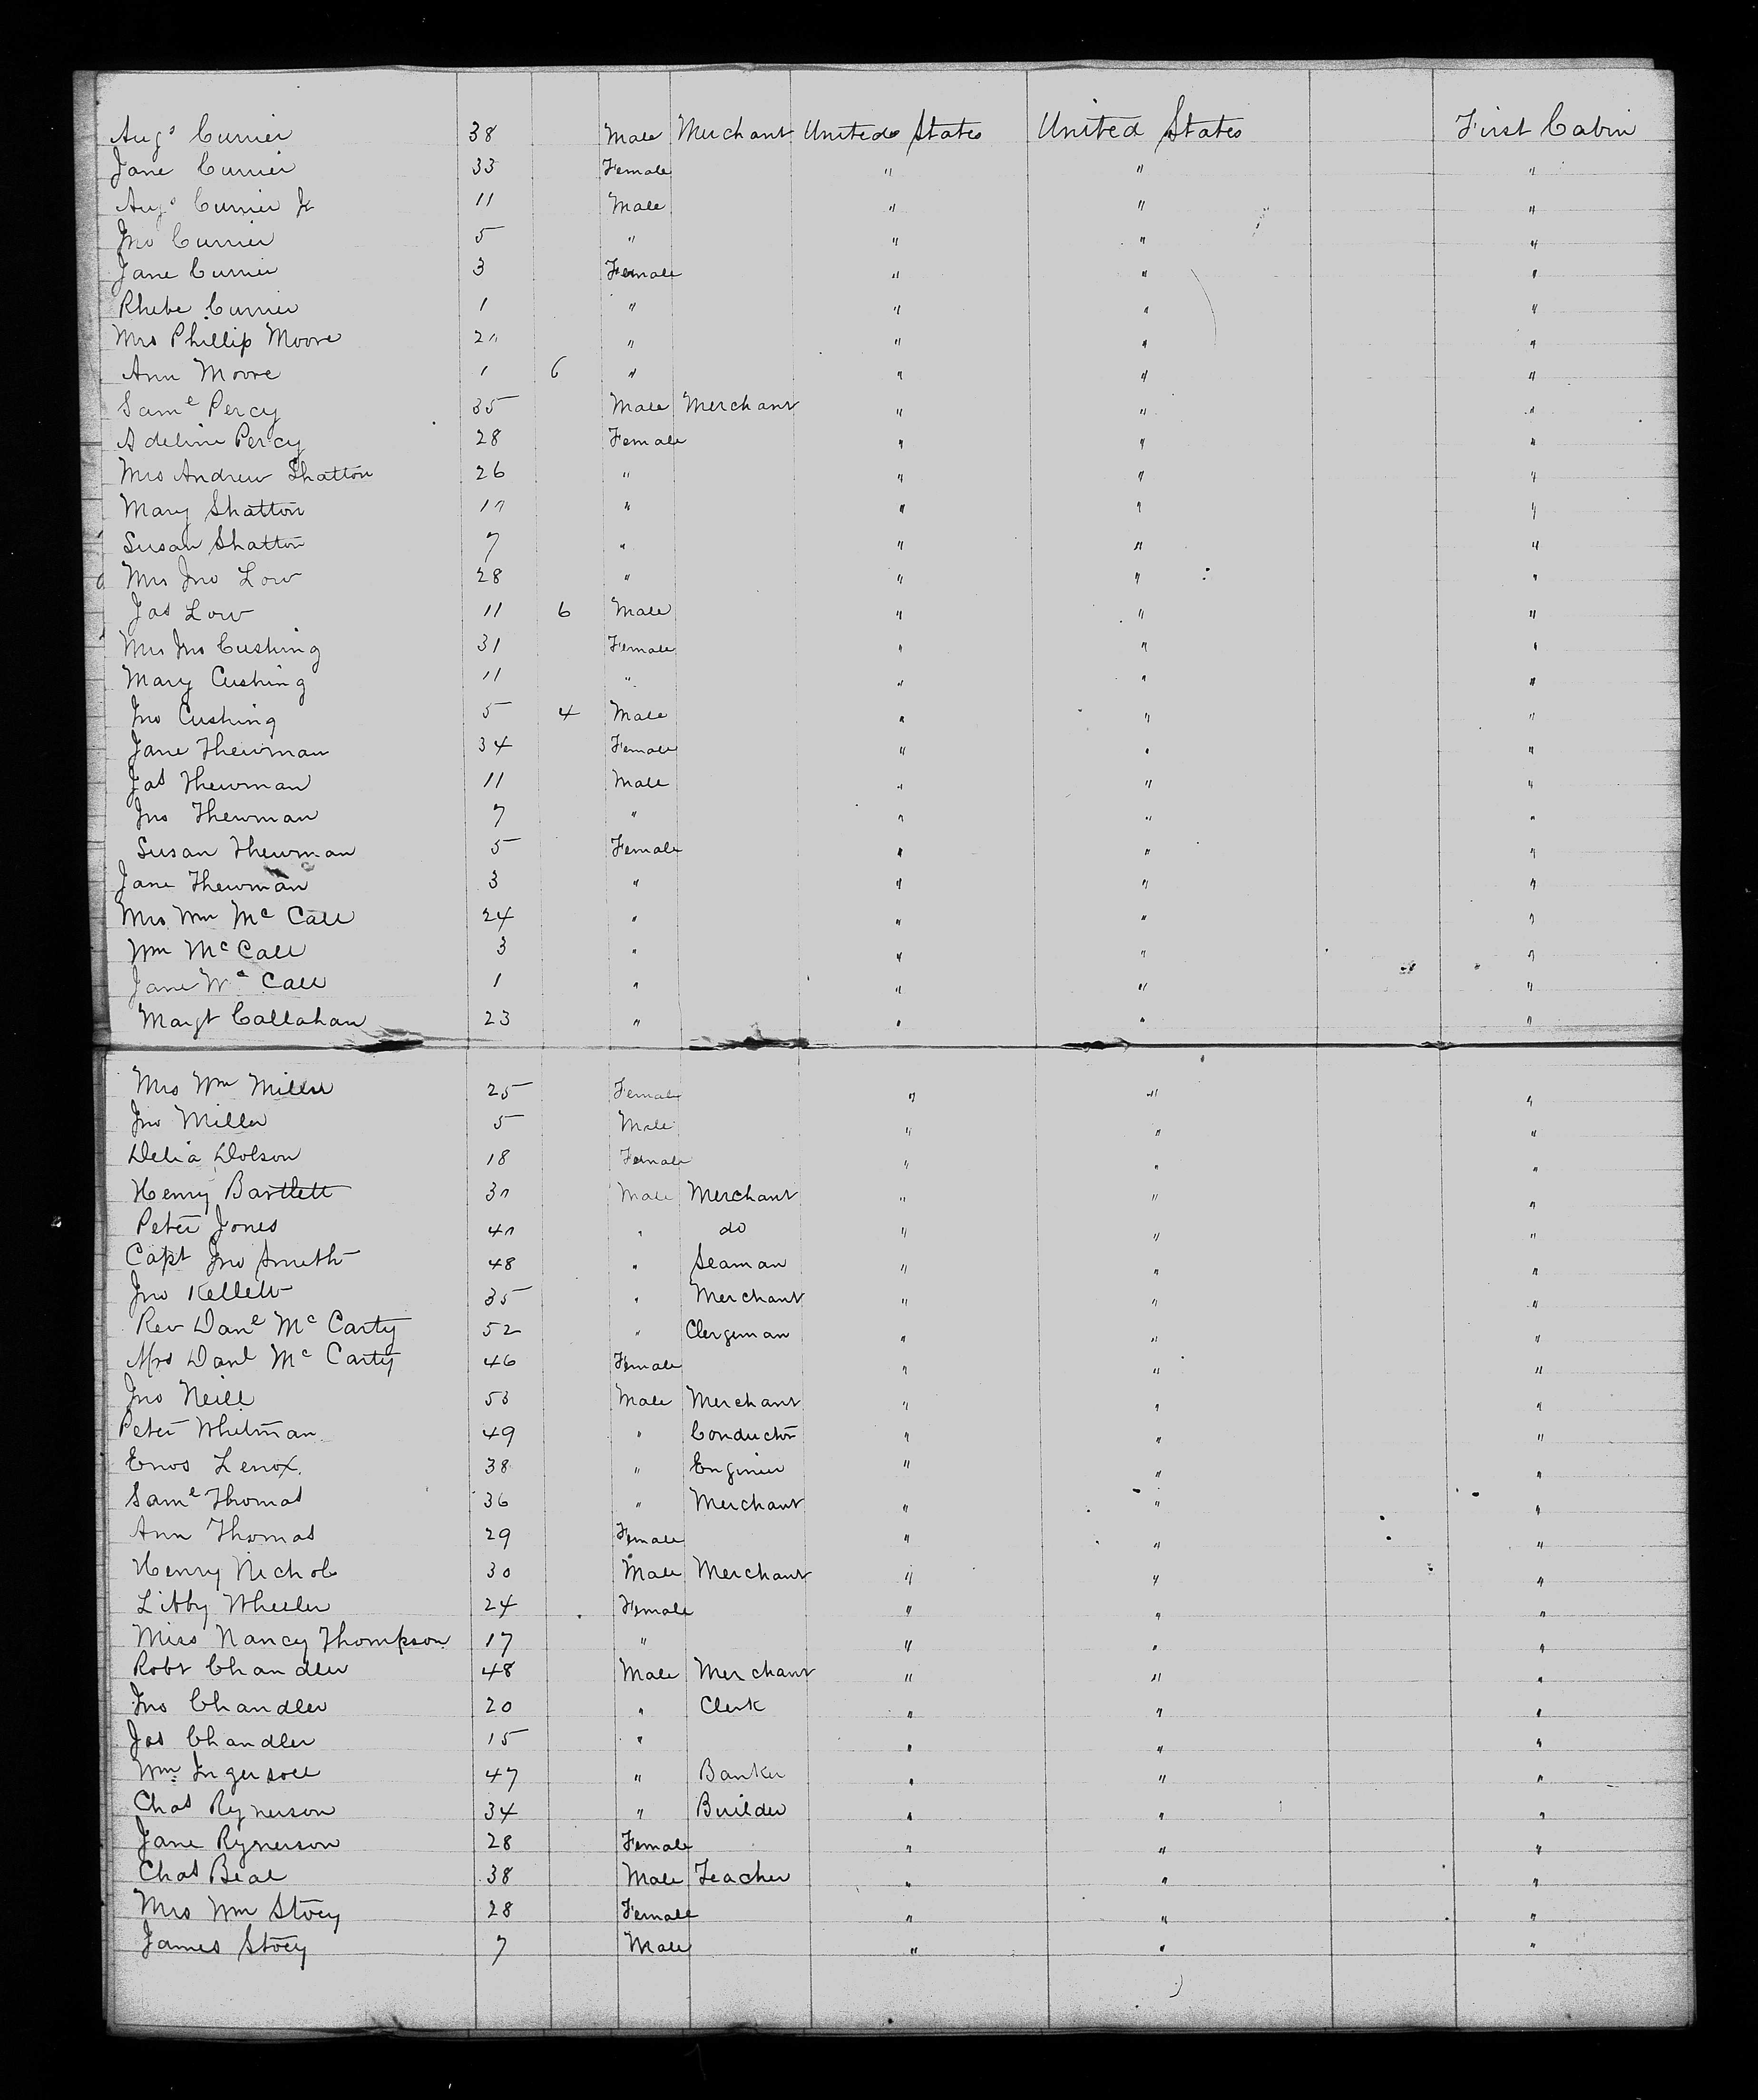 Augs Currier 38 Male Merchant United States United States First Cabin
Jane Currier 33 Female " " "
Augs Currier Jr 11 Male " " "
Jno Currier 5 " " " "
Jane Currier 3 Female " " "
Phebe Currier 1 " " " "
Mrs Phillip Moore " " " "
Ann Moore 1 6 " " " "
Saml Percy 35 Male Merchant " " "
Adeline Percy 28 Female " " "
Mrs Andrew Shatton 26 " " " "
Mary Shatton " " " "
Susan Shatton 7 " " " "
Mrs Jno Low 28 " " " "
Jas Low 11 6 Male " " "
Mrs Jno Cushing 31 Female " " "
Mary Cushing 11 " " " "
Jno Cushing 5 4 Male " " "
Jane Thewman 34 Female " " "
Jas Thewman 11 Male " " "
Jno Thewman 7 " " " "
Susan Thewman 5 Female " " "
Jane Thewman 3 " " " "
Mrs Wm Mc Call 24 " " " "
Wm Mc Call 3 " " " "
Jane Mc Call 1 " " " "
Margt Callahan 23 " " " "
Mrs Wm Miller 25 Female " " "
Jno Miller 5 Male " " "
Delia Dolson 18 Female " " "
Henry Bartlett Male Merchant " " "
Peter Jones " do " " "
Capt Jno Smith 48 " Seaman " " "
Jno Kellett 35 " Merchant " " "
Rev Danl Mc Carty 52 " Clergeman " " "
Mrs Danl Mc Carty 46 Female " " "
Jno Neill 53 Male Merchant " " "
Peter Whitman 49 " Conductor " " "
Enos Lenox. 38 " Enginier " " "
Saml Thomas 36 " Merchant " " "
Ann Thomas 29 Female " " "
Henry Nichols 30 Male Merchant " " "
Libby Wheeler 24 Female " " "
Miss Nancy Thompson 17 " " " "
Robt Chandler 48 Male Merchant " " "
Jno Chandler 20 " Clerk " " "
Jas Chandler 15 " " " "
Wm Ingersoll 47 " Banker " " "
Chas Rynerson 34 " Builder " " "
Jane Rynerson 28 Female " " "
Chas Beal 38 Male Teacher " " "
Mrs Wm Story 28 Female " " "
James Story 7 Male " " "